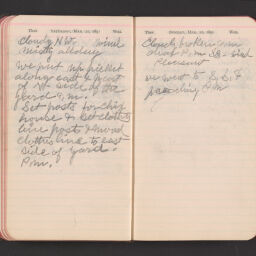 Ther. SATURDAY, MAR. 19, 1898 Wea.
Cloudy N.W. wind
misty all day
We put up picket
along east & west
of
yard P.M.
I Set posts for chip
house & Set cloths
line posts & moved
clothes line to east
side of yard.
P.m.
Ther. SUNDAY, MAR. 20, 1898 Wea.
Cloudy broken
P.m. wind
Pleasant
we went to S.S. &
preaching P.m